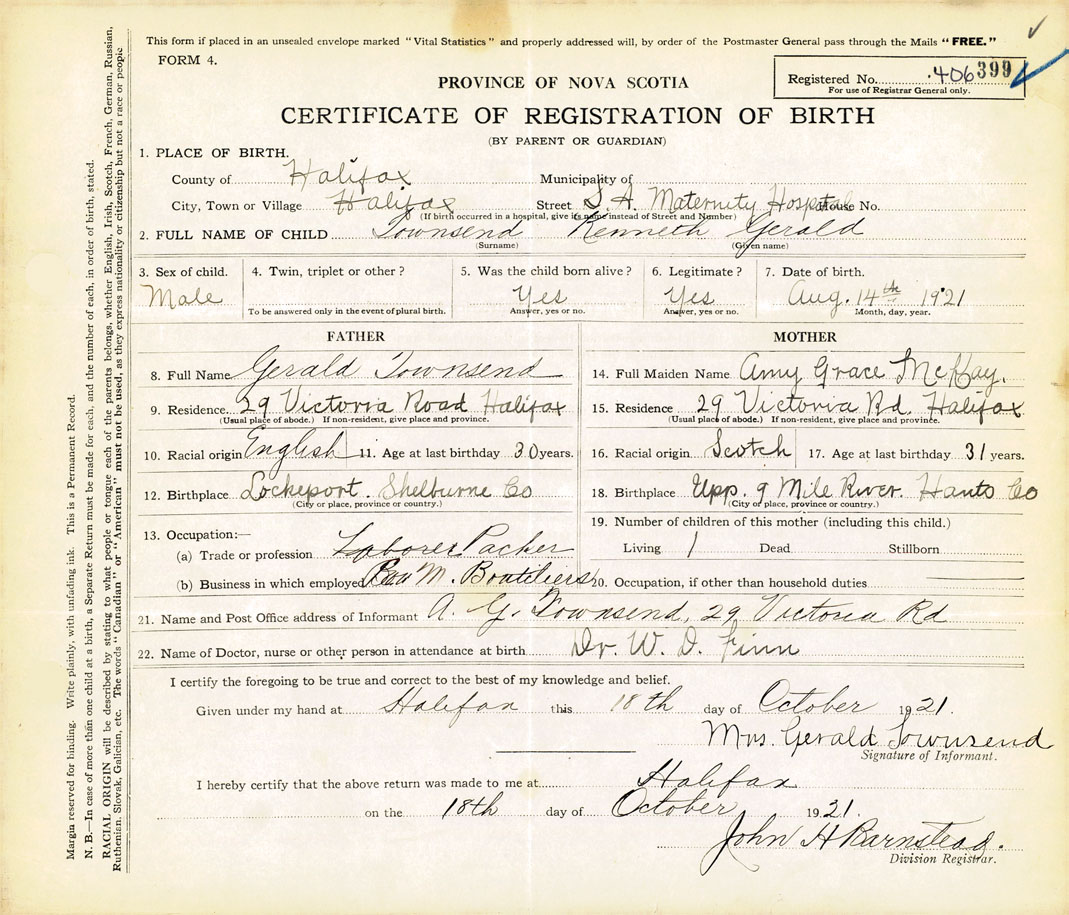 This form if placed in an unsealed envelope marked "Vital Statistics" and properly addressed will, by order of the Postmaster General pass through the Mails "FREE."
FORM 4.
Registered No. 406399
For use of Registrar General only.
PROVINCE OF NOVA SCOTIA
CERTIFICATE OF REGISTRATION OF BIRTH
(BY PARENT OR GUARDIAN)
1. PLACE OF BIRTH.
County of Halifax Municipality of
City, Town or Village Halifax Street S. A. Maternity Hospital House No.
(If birth occurred in a hospital, give its name instead of Street and Number)
2. FULL NAME OF CHILD Townsend Kenneth Gerald
(Surname) (Given name)
3. Sex of child. 4. Twin, triplet or other? 5. Was the child born alive? 6. Legitimate? 7. Date of birth.
Male Yes Yes Aug. 14th 1921
To be answered only in the event of plural birth. Answer, yes or no. Answer, yes or no. Month, day, year.
FATHER MOTHER
8. Full Name Gerald Townsend 14. Full Maiden Name Amy Grace McKay.
9. Residence. 29 Victoria Road Halifax 15. Residence 29 Victoria Rd. Halifax
(Usual place of abode.) If non-resident, give place and province. (Usual place of abode.) If non-resident, give place and province.
10. Racial origin English 11. Age at last birthday 30 years. 16. Racial origin Scotch 17. Age at last birthday 31 years.
12. Birthplace Lockeport. Shelburne Co 18. Birthplace Upp. 9 Mile River. Hants Co
(City or place, province or country.) (City or place, province or country.)
13. Occupation:— 19. Number of children of this mother (including this child.)
(a) Trade or profession Laborer Packer Living 1 Dead Stillborn
(b) Business in which employed M. Boutiliers 20. Occupation, if other than household duties
21. Name and Post Office address of Informant A. G. Townsend, 29 Victoria Rd
22. Name of Doctor, nurse or other person in attendance at birth Dr. W. D. Finn
I certify the foregoing to be true and correct to the best of my knowledge and belief.
Given under my hand at Halifax this 18th day of October 1921.
Mrs. Gerald Townsend
Signature of Informant.
I hereby certify that the above return was made to me at Halifax
on the 18th day of October 1921.
John H Barnstead.
Division Registrar.
Margin reserved for binding. Write plainly, with unfading ink. This is a Permanent Record.
N. B.—In case of more than one child at a birth, a Separate Return must be made for each, and the number of each, in order of birth, stated.
RACIAL ORIGIN will be described by stating to what people or tongue each of the parents belongs, whether English, Irish, Scotch, French, German, Russian,
Ruthenian, Slovak, Galician, etc. The words "Canadian" or "American" must not be used, as they express nationality or citizenship but not a race or people